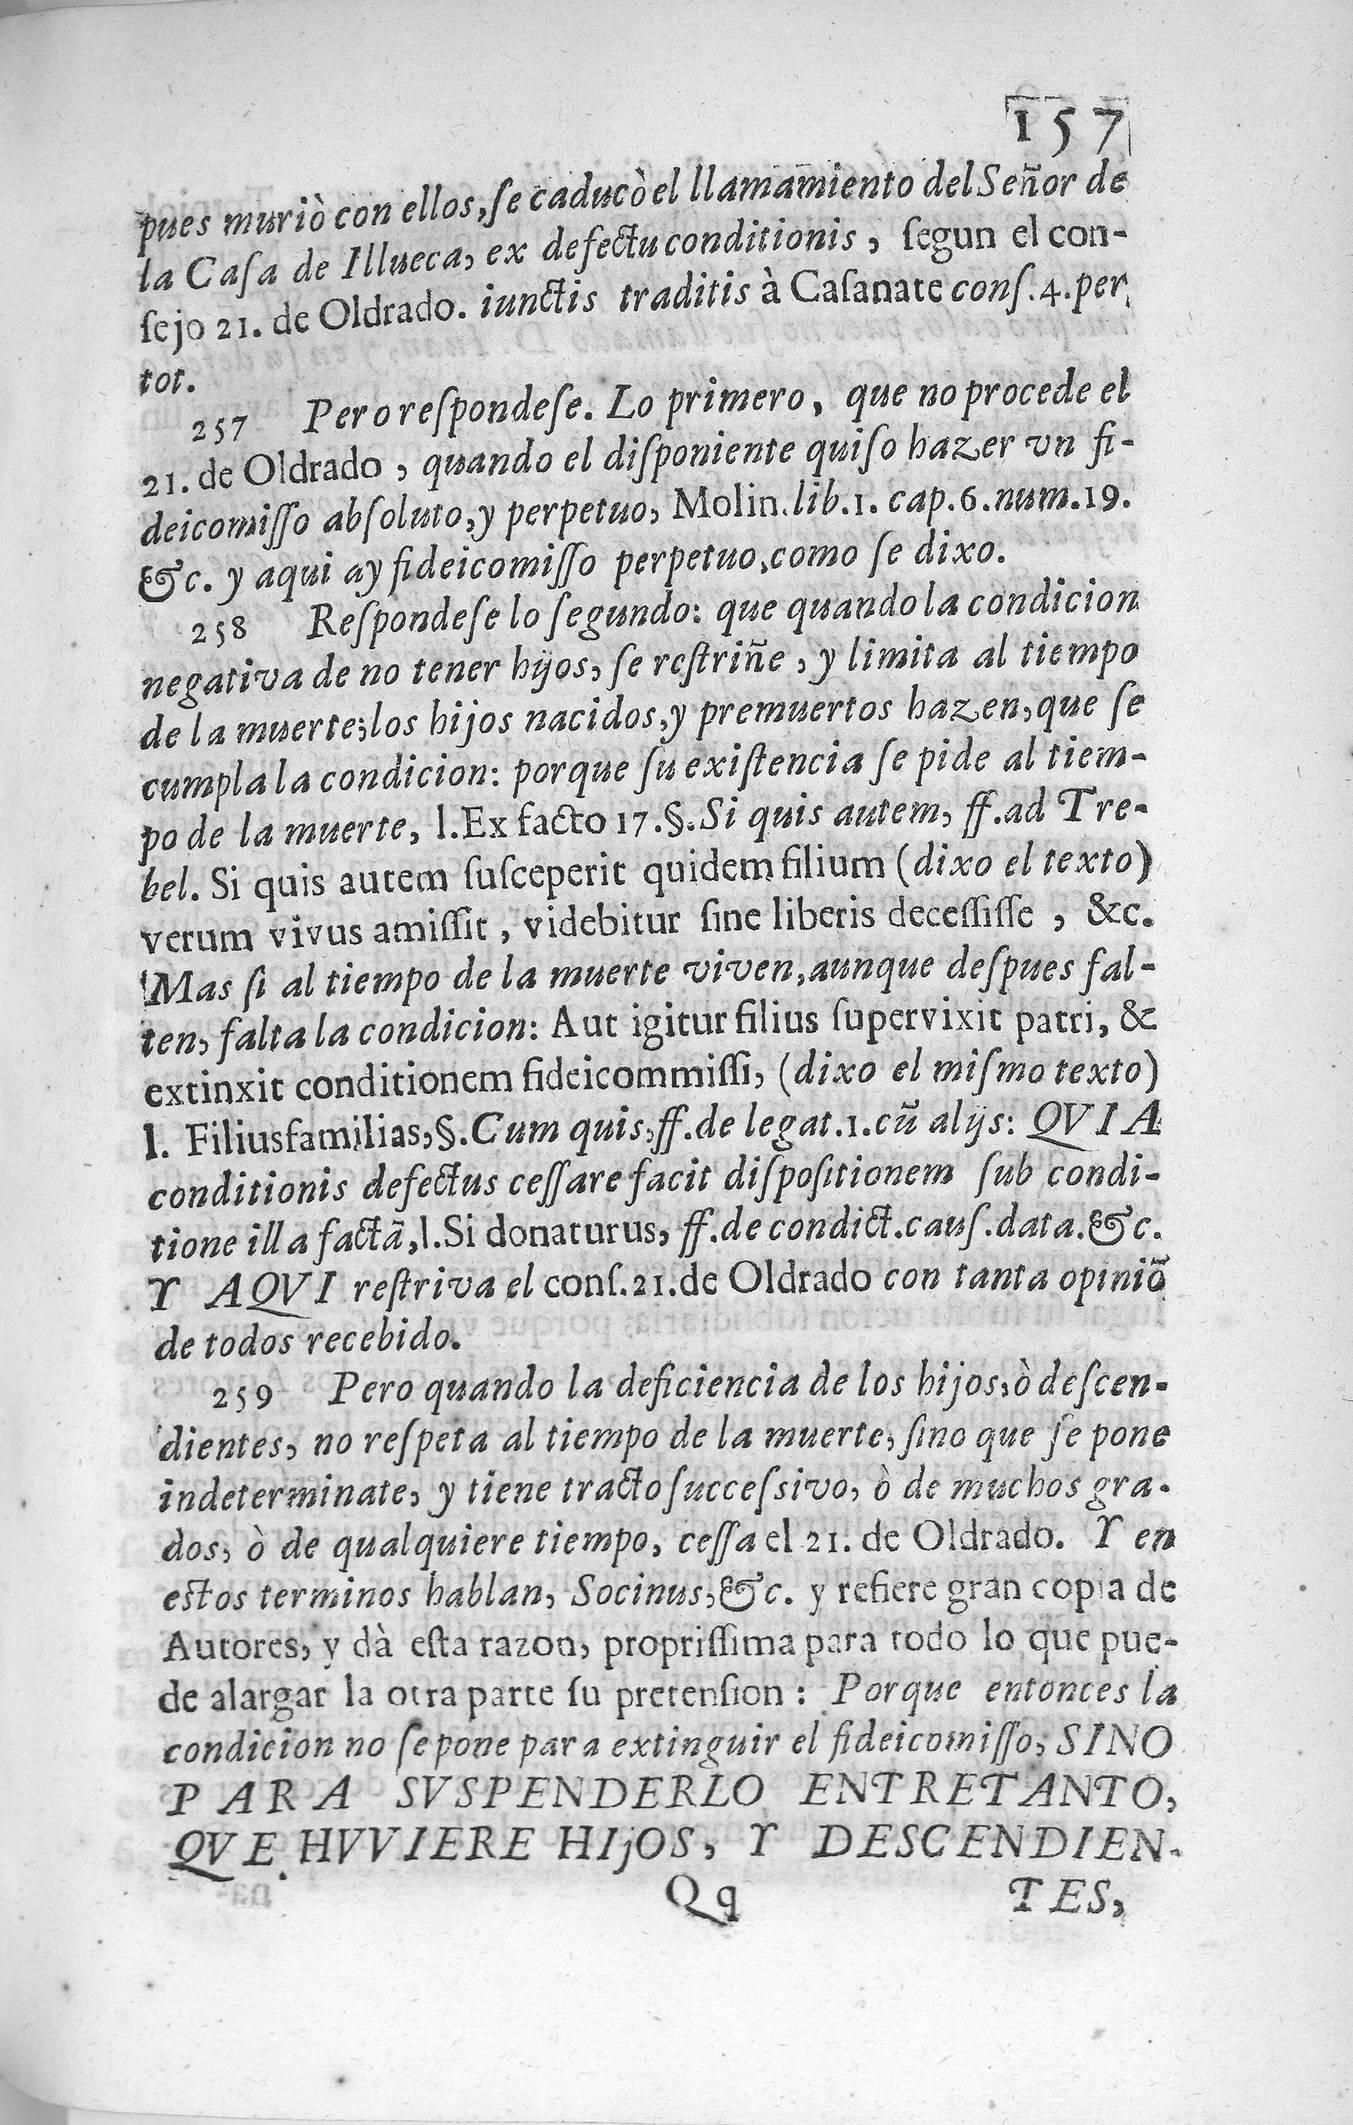 157
pues muriò con ellos, ſe caducò el llamamiento del Señor de
la Caſa de Illueca, ex defectu conditionis, ſegun el con-
ſejo 21. de Oldrado. iunctis traditis à Caſanate conſ. 4. per
tot.
257 Pero reſpondeſe. Lo primero, que no procede el
21. de Oldrado, quando el diſponiente quiſo hazer vn fi-
deicomiſſo abſoluto, y perpetuo, Molin. lib. 1. cap. 6. num. 19.
&c. y aqui ay fideicomiſſo perpetuo, como ſe dixo.
258 Reſpondeſe lo ſegundo: que quando la condicion
negativa de no tener hijos, ſe reſtriñe, y limita al tiempo
de la muerte; los hijos nacidos, y premuertos hazen, que ſe
cumpla la condicion: porque ſu exiſtencia ſe pide al tiem-
po de la muerte, l. Ex facto 17. §. Si quis autem, ff. ad Tre-
bel. Si quis autem ſuſceperit quidem filium (dixo el texto)
verum vivus amiſſit, videbitur ſine liberis deceſſiſſe, &c.
Mas ſi al tiempo de la muerte viven, aunque deſpues fal-
ten, falta la condicion: Aut igitur filius ſupervixit patri, &
extinxit conditionem fideicommiſſi, (dixo el miſmo texto)
l. Filiusfamilias, §. Cum quis, ff. de legat. 1. cũ alijs: QVIA
conditionis defectus ceſſare facit diſpoſitionem ſub condi-
tione illa factã, l. Si donaturus, ff. de condict. cauſ. data. &c.
Y AQVI reſtriva el conſ. 21. de Oldrado con tanta opiniõ
de todos recebido.
259 Pero quando la deficiencia de los hijos, ò deſcen-
dientes, no reſpeta al tiempo de la muerte, ſino que ſe pone
indeterminate, y tiene tracto ſucceſsivo, ò de muchos gra-
dos, ò de qualquiere tiempo, ceſſa el 21. de Oldrado. Y en
eſtos terminos hablan, Socinus, &c. y refiere gran copia de
Autores, y dà eſta razon, propriſſima para todo lo que pue-
de alargar la otra parte ſu pretenſion: Porque entonces la
condicion no ſe pone para extinguir el fideicomiſſo, SINO
PARA SVSPENDERLO ENTRETANTO,
QVE HVVIERE HIjOS, Y DESCENDIEN-
Qq TES,